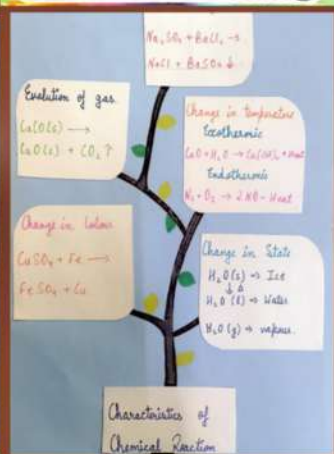 Na₂SO₄ + BaCl₂ →
NaCl + BaSO₄ ↓
Evolution of gas
CaO(s) →
CaO(s) + CO₂ ↑
Change in temperature
Exothermic
CaO + H₂O → Ca(OH)₂ + Heat
Endothermic
N₂ + O₂ → 2NO - Heat
Change in Colour
CuSO₄ + Fe →
FeSO₄ + Cu
Change in State
H₂O (s) → Ice
↓↑
H₂O (l) → Water
H₂O (g) → vapour.
Characteristics of
Chemical Reaction